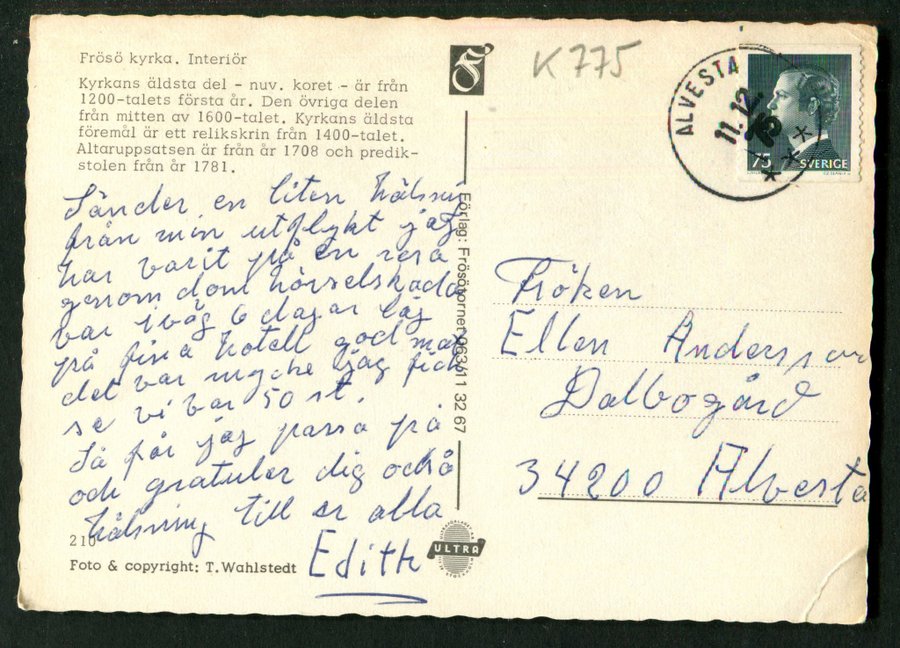 Frösö kyrka. Interiör
Kyrkans äldsta del - nuv. koret - är från
1200-talets första år. Den övriga delen
från mitten av 1600-talet. Kyrkans äldsta
föremål är ett relikskrin från 1400-talet.
Altaruppsatsen är från år 1708 och predik-
stolen från år 1781.
Sänder en liten hälsning
från min utflykt jag
har varit på en resa
genom dom hörselskada
var iväg 6 dagar låg
på fina hotell god mat
det var myche jag fick
se vi var 50 st.
Så får jag passa på
och gratuler dig också
hälsning till er alla
Edith
210
Foto & copyright: T. Wahlstedt
Förlag: Frösötornet 063/11 32 67
ULTRA
K 775
ALVESTA
11.12.
75 SVERIGE
Fröken
Ellen Andersson
Dalbogård
34200 Alvesta